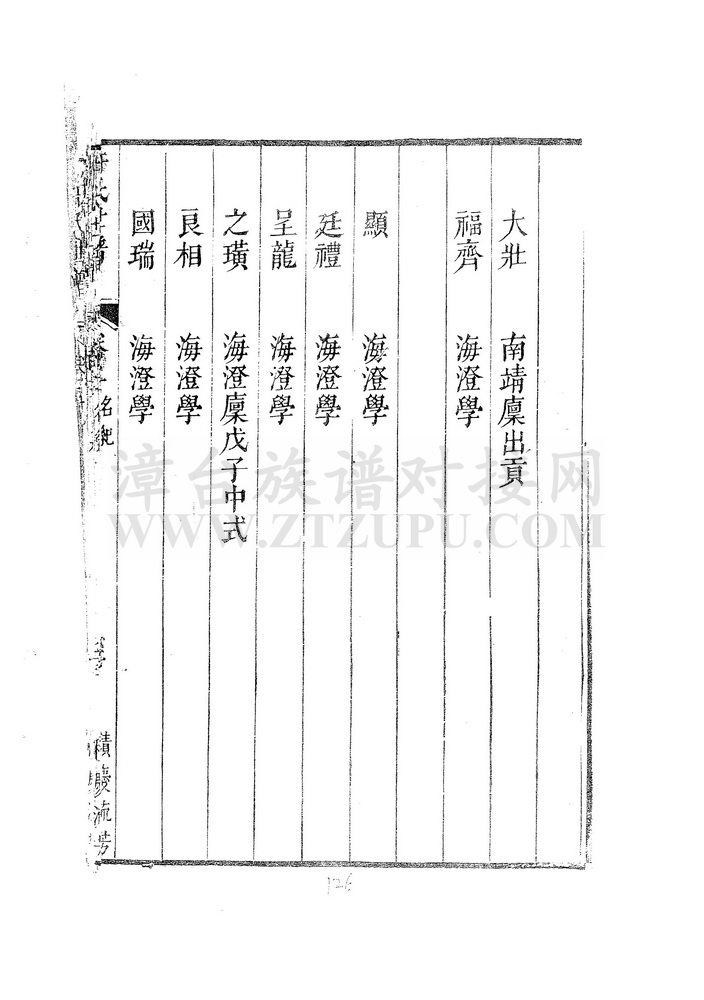 大壯 南靖廩出貢
福齊 海澄學
顯 海澄學
廷禮 海澄學
呈龍 海澄學
之璜 海澄廩戊子中式
良相 海澄學
國瑞 海澄學
積慶流芳
漳台族谱对接网
WWW.ZTZUPU.COM
126